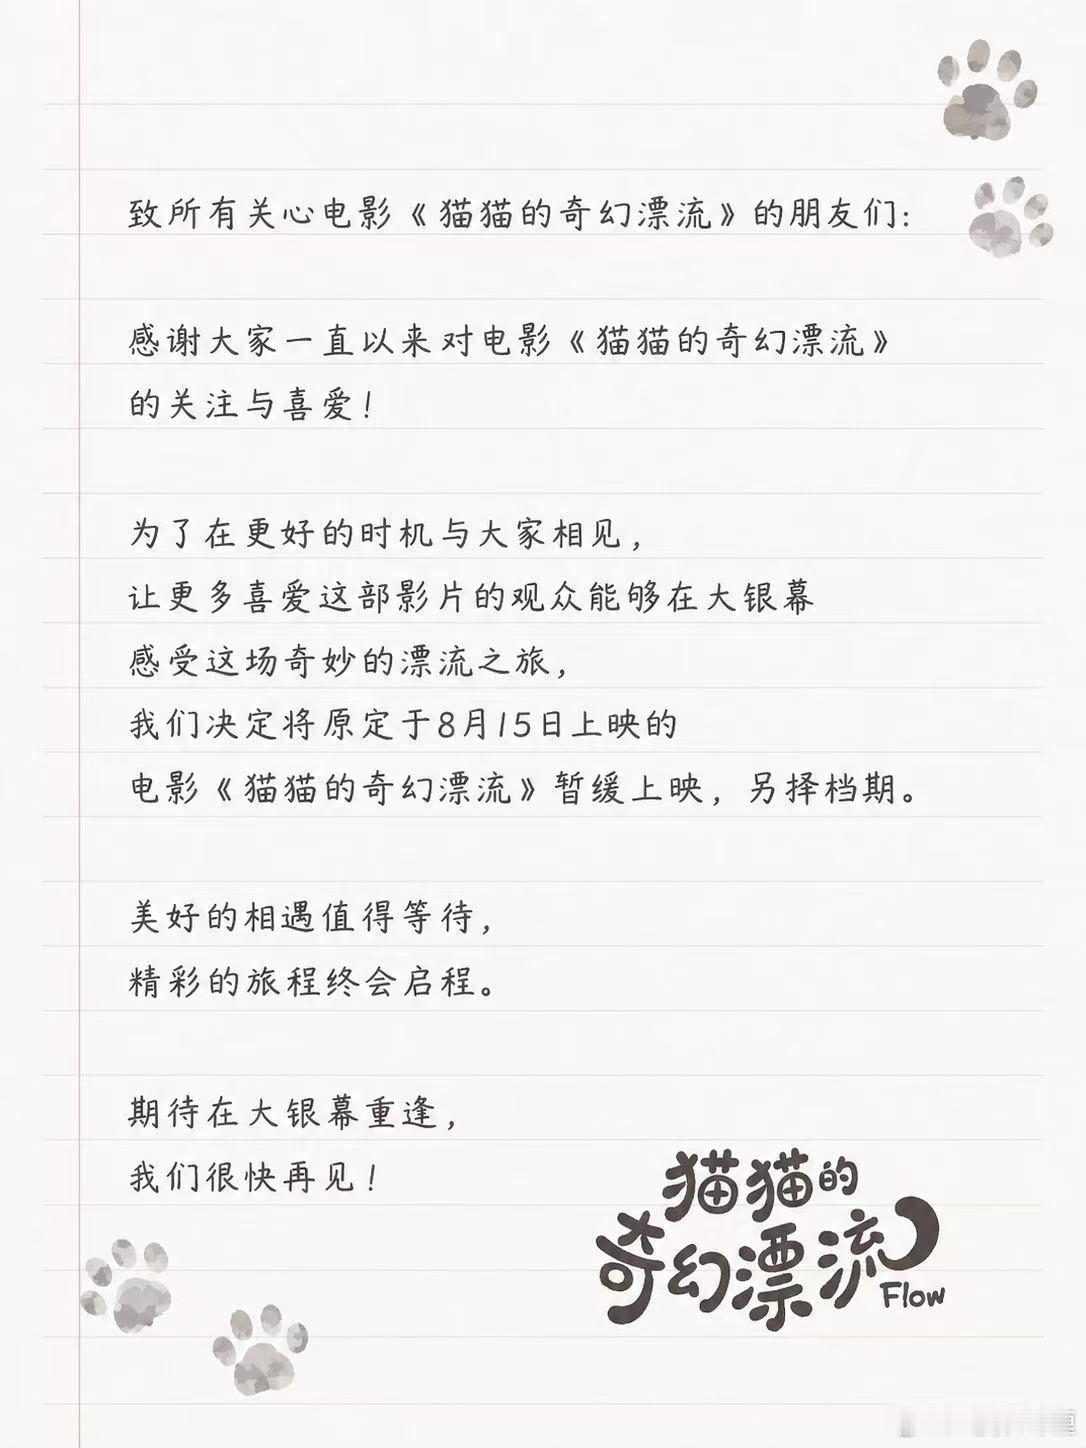 致所有关心电影《猫猫的奇幻漂流》的朋友们：
感谢大家一直以来对电影《猫猫的奇幻漂流》
的关注与喜爱！
为了在更好的时机与大家相见，
让更多喜爱这部影片的观众能够在大银幕
感受这场奇妙的漂流之旅，
我们决定将原定于8月15日上映的
电影《猫猫的奇幻漂流》暂缓上映，另择档期。
美好的相遇值得等待，
精彩的旅程终会启程。
期待在大银幕重逢，
我们很快再见！
猫猫的
奇幻漂流
Flow